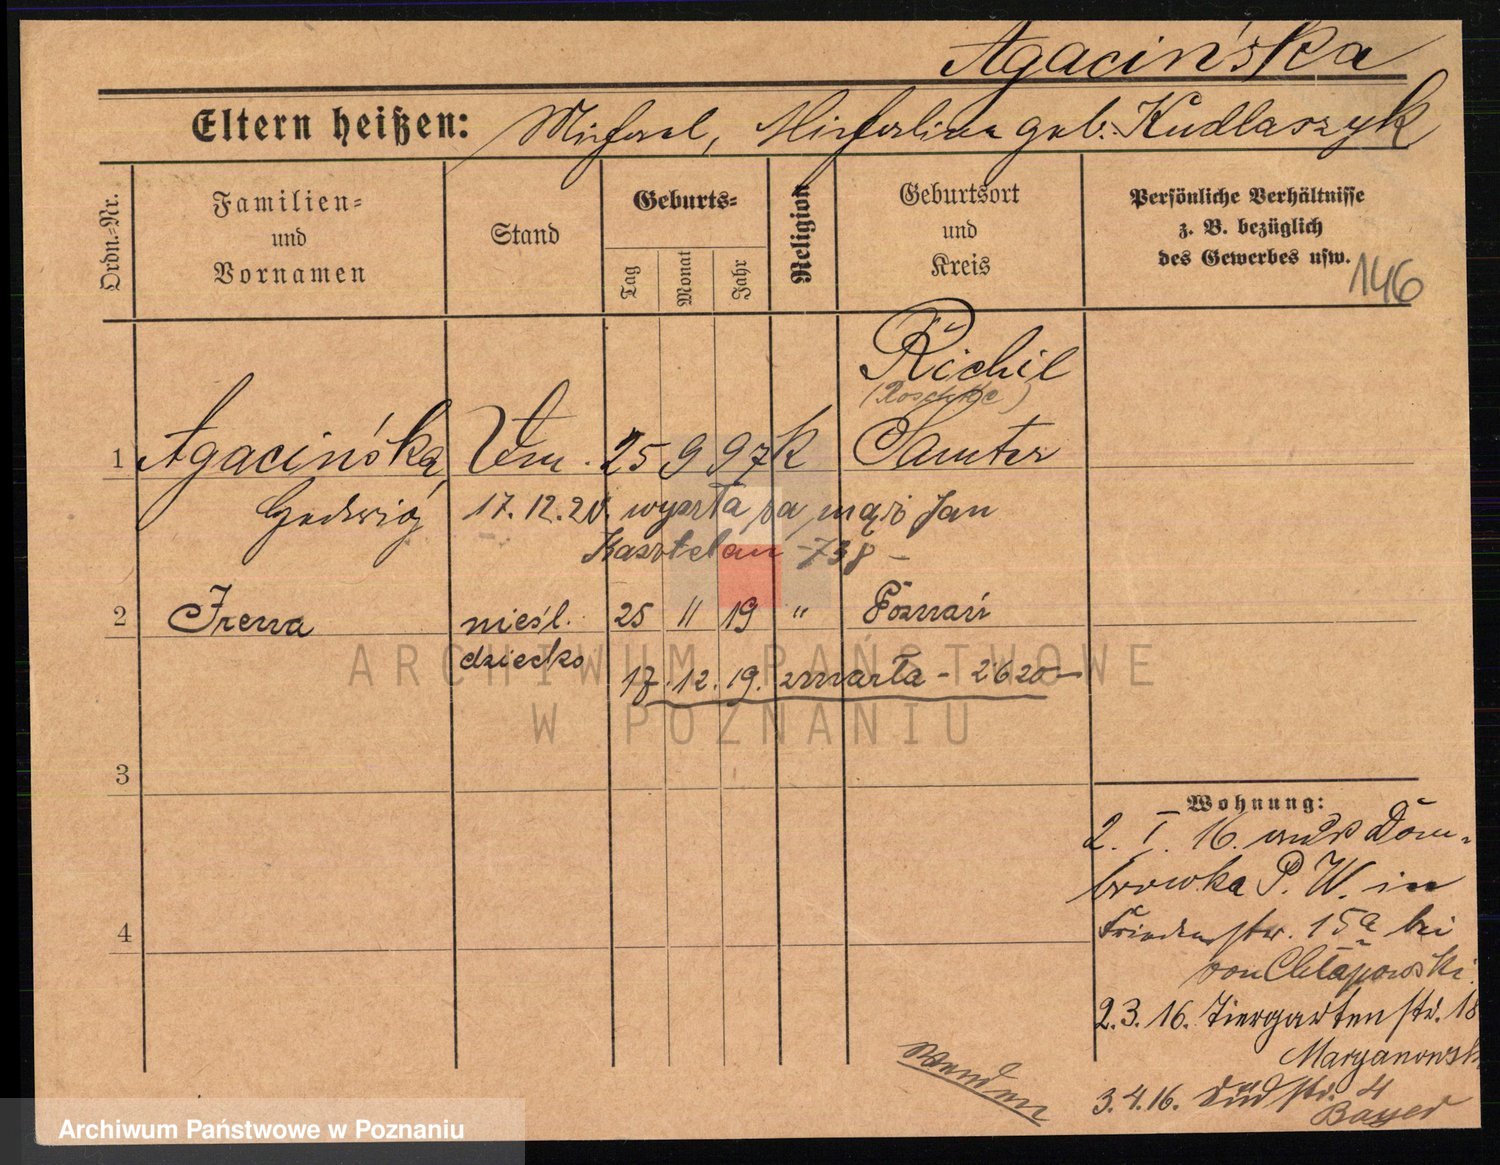 Agacińska
Eltern heißen: Michael, Michalina geb. Kudlaszyk
Ordn.-Nr.
Familien-
und
Vornamen
Stand
Geburts-
Tag
Monat
Jahr
Religion
Geburtsort
und
Kreis
Persönliche Verhältnisse
z. B. bezüglich
des Gewerbes usw.
146
Richil
1 Agacińska, 25 9 97 K Samter
Hedwig 17. 12. 20. wyszła za mąż Jan
Kasztelan -738-
2 Irena nieśl. 25 11 19 " Poznań
dziecko
17. 12. 19. zmarła - 2620-
3
4
Wohnung:
2. I. 16. aus Dom-
browka P. W. in
Friedenstr. 15a bei
von Chłapowski
2.3.16. Tiergartenstr. 18
Maryanowsk
3.4.16. Südstr. 4
Bayer
Wenden
ARCHIWUM PAŃSTWOWE
W POZNANIU
Archiwum Państwowe w Poznaniu